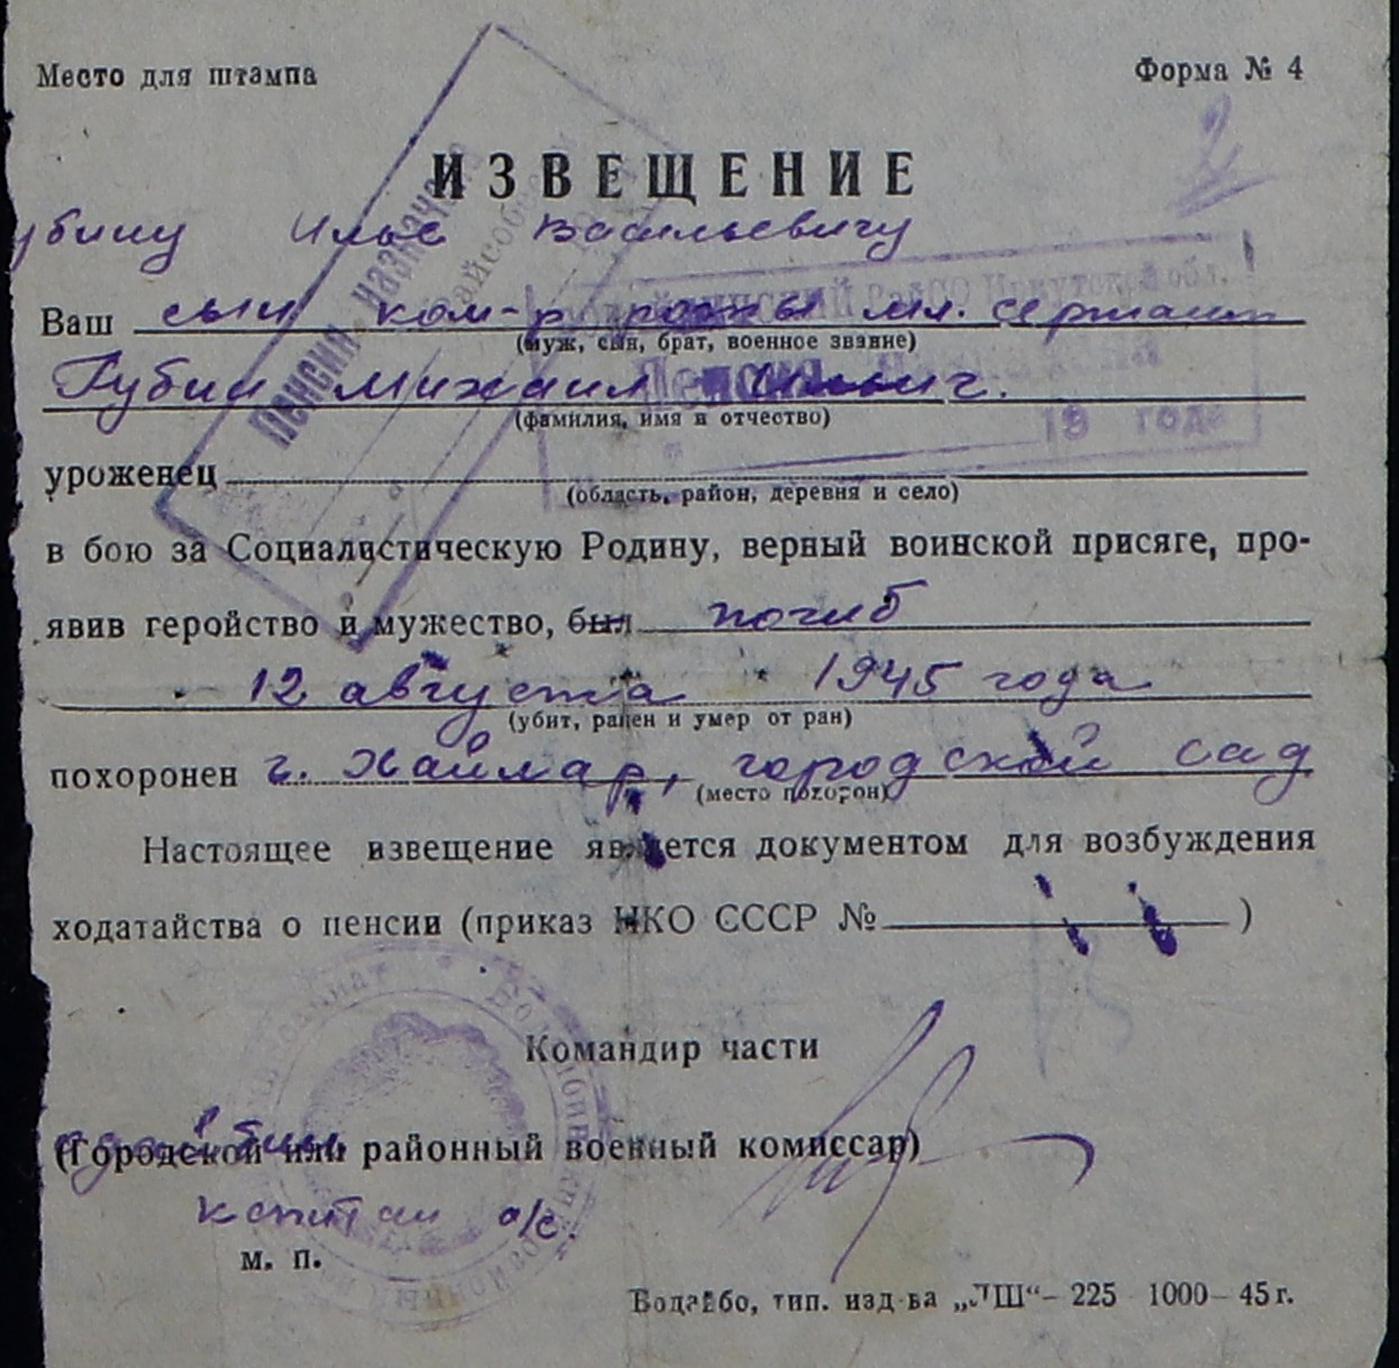 Место для штампа
Форма № 4
ИЗВЕЩЕНИЕ
убину Илье Васильевичу
Ваш сын ком-р роты мл. сержант
(муж, сын, брат, военное звание)
Губин Михаил Ильич.
(фамилия, имя и отчество)
уроженец
(область, район, деревня и село)
в бою за Социалистическую Родину, верный воинской присяге, про-
явив геройство и мужество, был погиб
12 августа 1945 года
(убит, ранен и умер от ран)
похоронен г. Хайлар, городской сад
(место похорон)
Настоящее извещение является документом для возбуждения
ходатайства о пенсии (приказ НКО СССР № )
Командир части
(Городской или районный военный комиссар)
капитан а/с.
м. п.
Бодайбо, тип. изд-ва „ЛШ“ – 225 1000 – 45 г.
Пенсия назначена
Иркутской обл.
Пенсия назначена
19 года
2